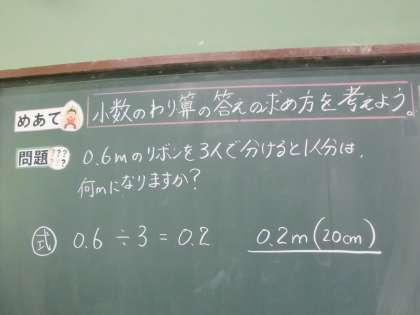 めあて 小数のわり算の答えの求め方を考えよう。
問題??? 0.6mのリボンを3人で分けると1人分は、
何mになりますか?
式 0.6÷3=0.2 0.2m(20cm)